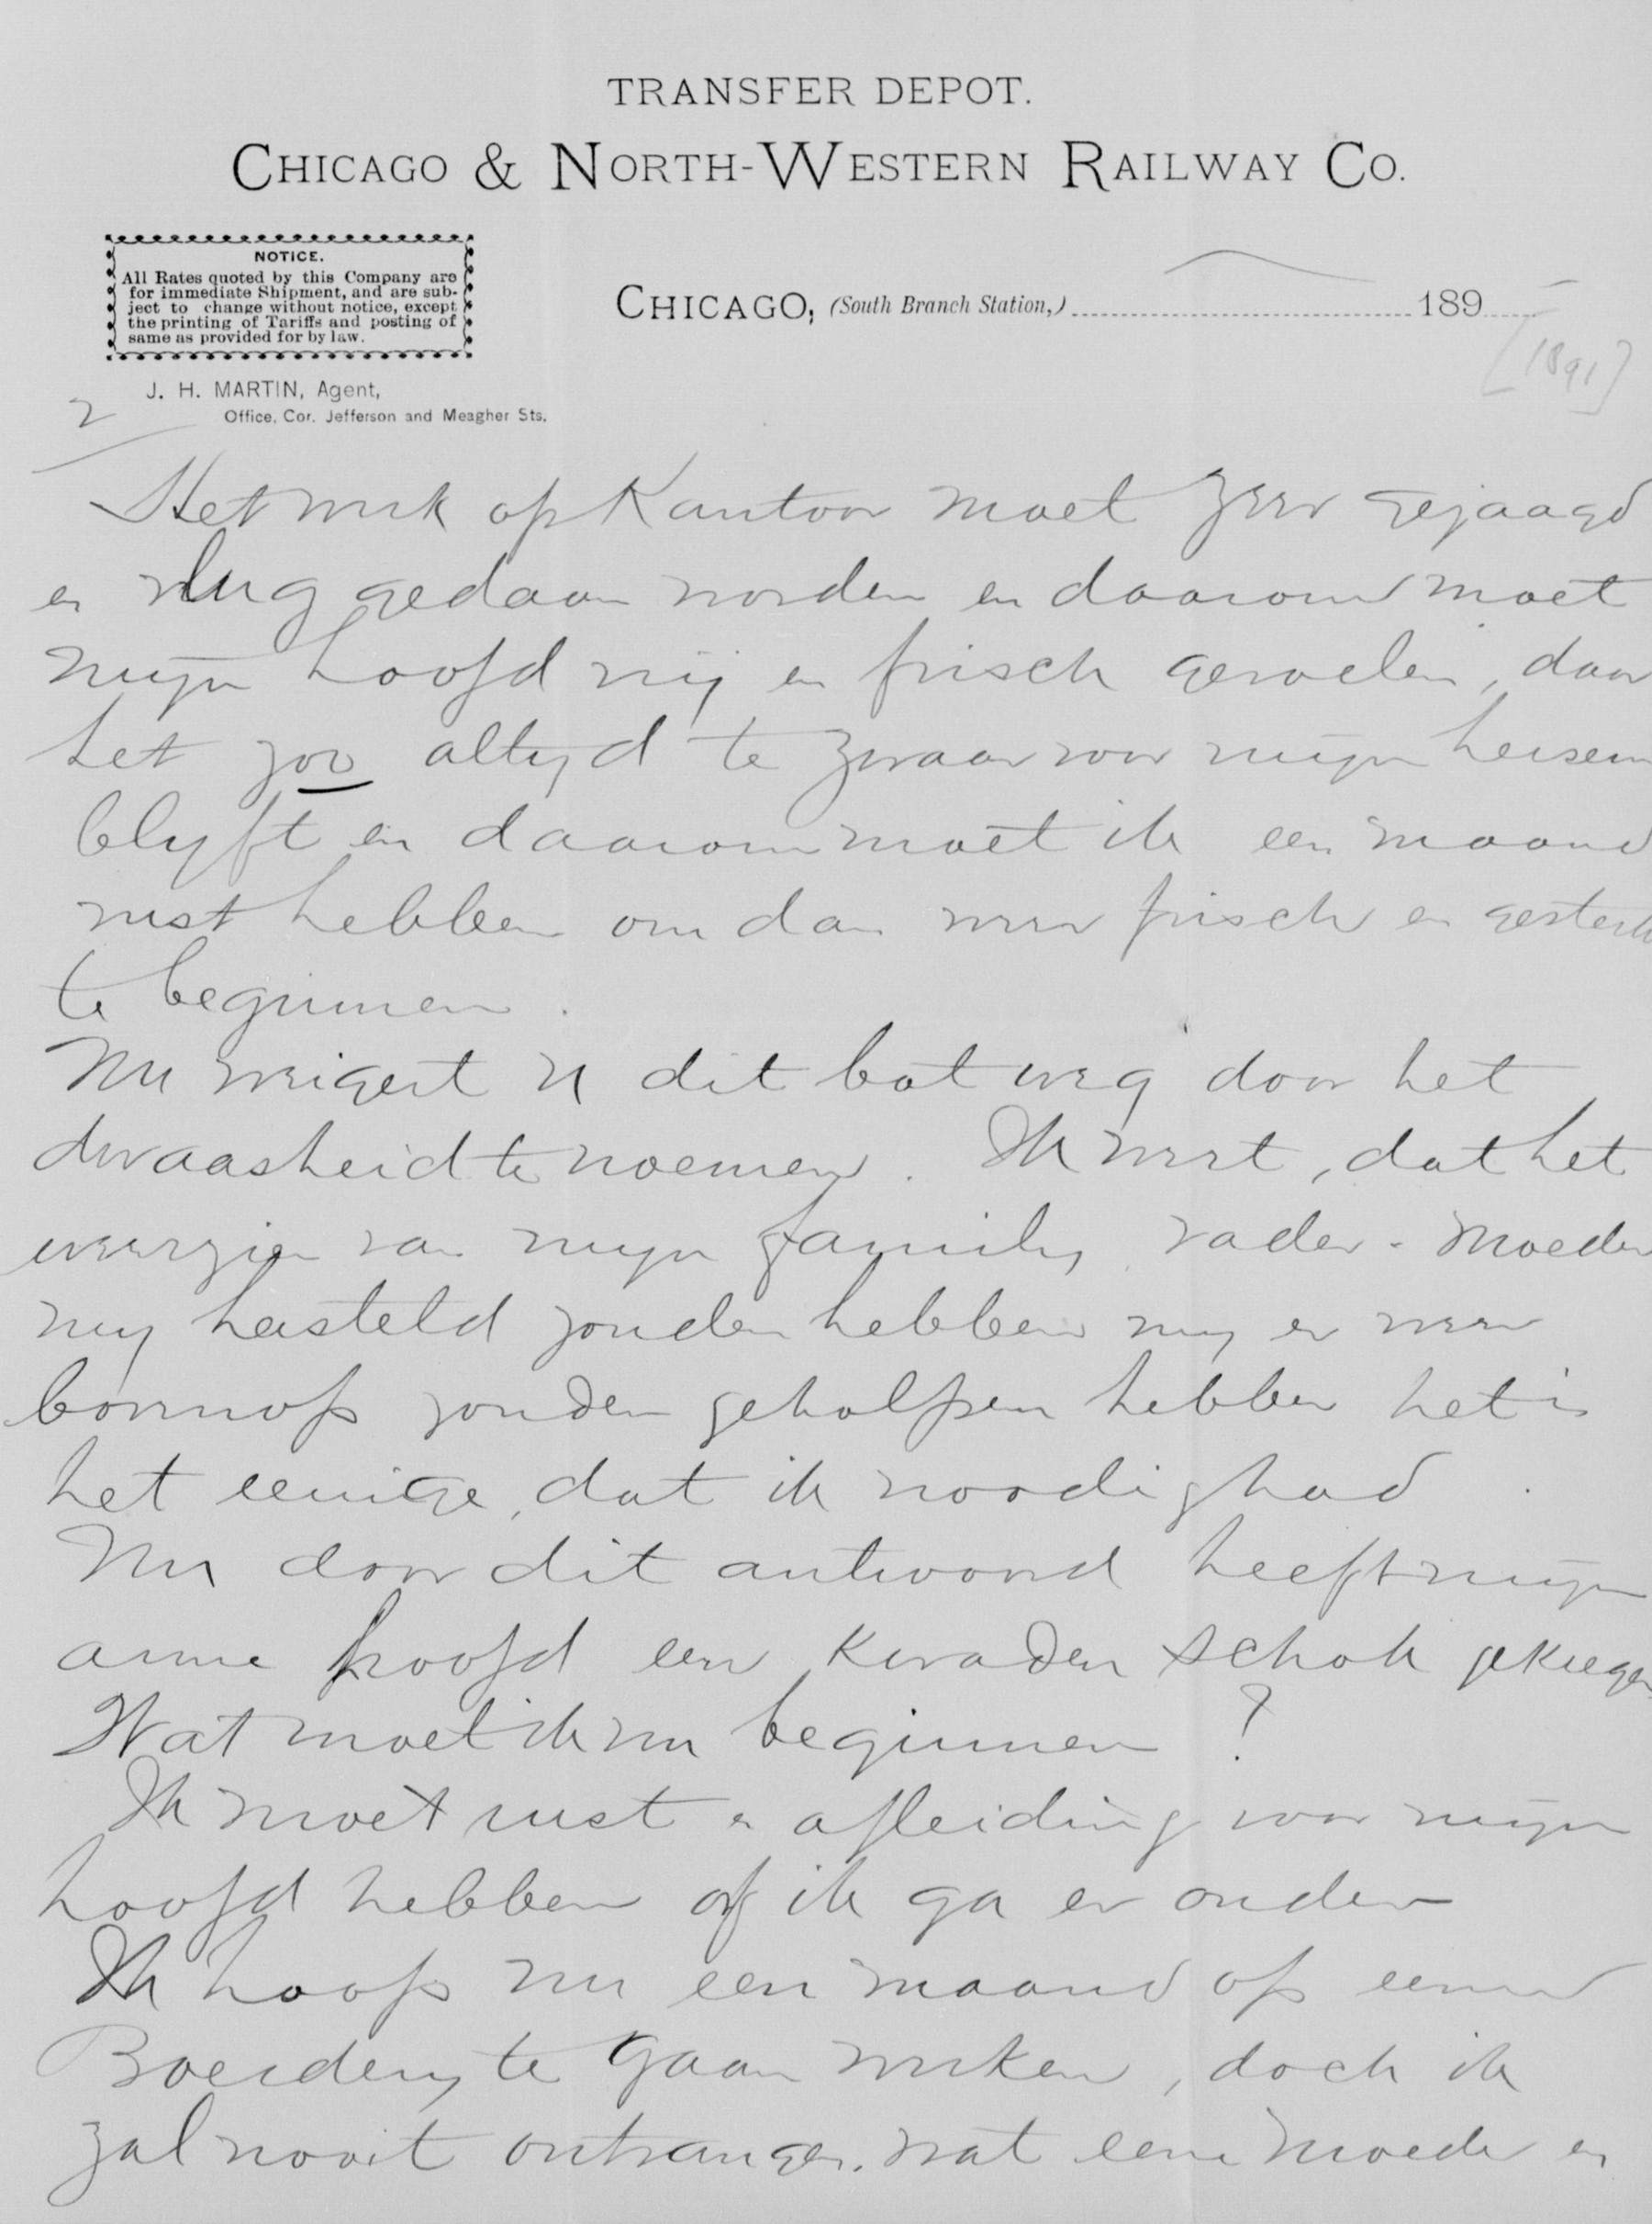 TRANSFER DEPOT.
CHICAGO & NORTH-WESTERN RAILWAY CO.
NOTICE.
All Rates quoted by this Company are
for immediate Shipment, and are sub-
ject to change without notice, except
the printing of Tariffs and posting of
same as provided for by law.
CHICAGO, (South Branch Station,) 189
[1891]
J. H. MARTIN, Agent,
Office, Cor. Jefferson and Meagher Sts.
2
Het werk op Kantoor moet zeer gejaagd
en vlug gedaan worden en daarom moet
mijn hoofd vrij en frisch gevoelen, daar
het zoo altyd te zwaar voor mijn hersens
blyft en daarom moet ik een maand
rust hebben om dan weer frisch en gesterkt
te beginnen.
Nu weigert U dit botweg door het
dwaasheid te noemen. Ik weet, dat het
weerzien van mijn family vader - moeder
my hersteld zouden hebben my er weer
bovenop zouden geholpen hebben het is
het eenige, dat ik noodig had.
Nu door dit antwoord heeft mijn
arme hoofd een kwaden schok gekregen
Wat moet ik nu beginnen?
Ik moet rust en afleiding voor mijn
hoofd hebben of ik ga er onder
Ik hoop nu een maand op eene
Boerdery te gaan werken, doch ik
zal nooit ontvangen wat eene Moeder en